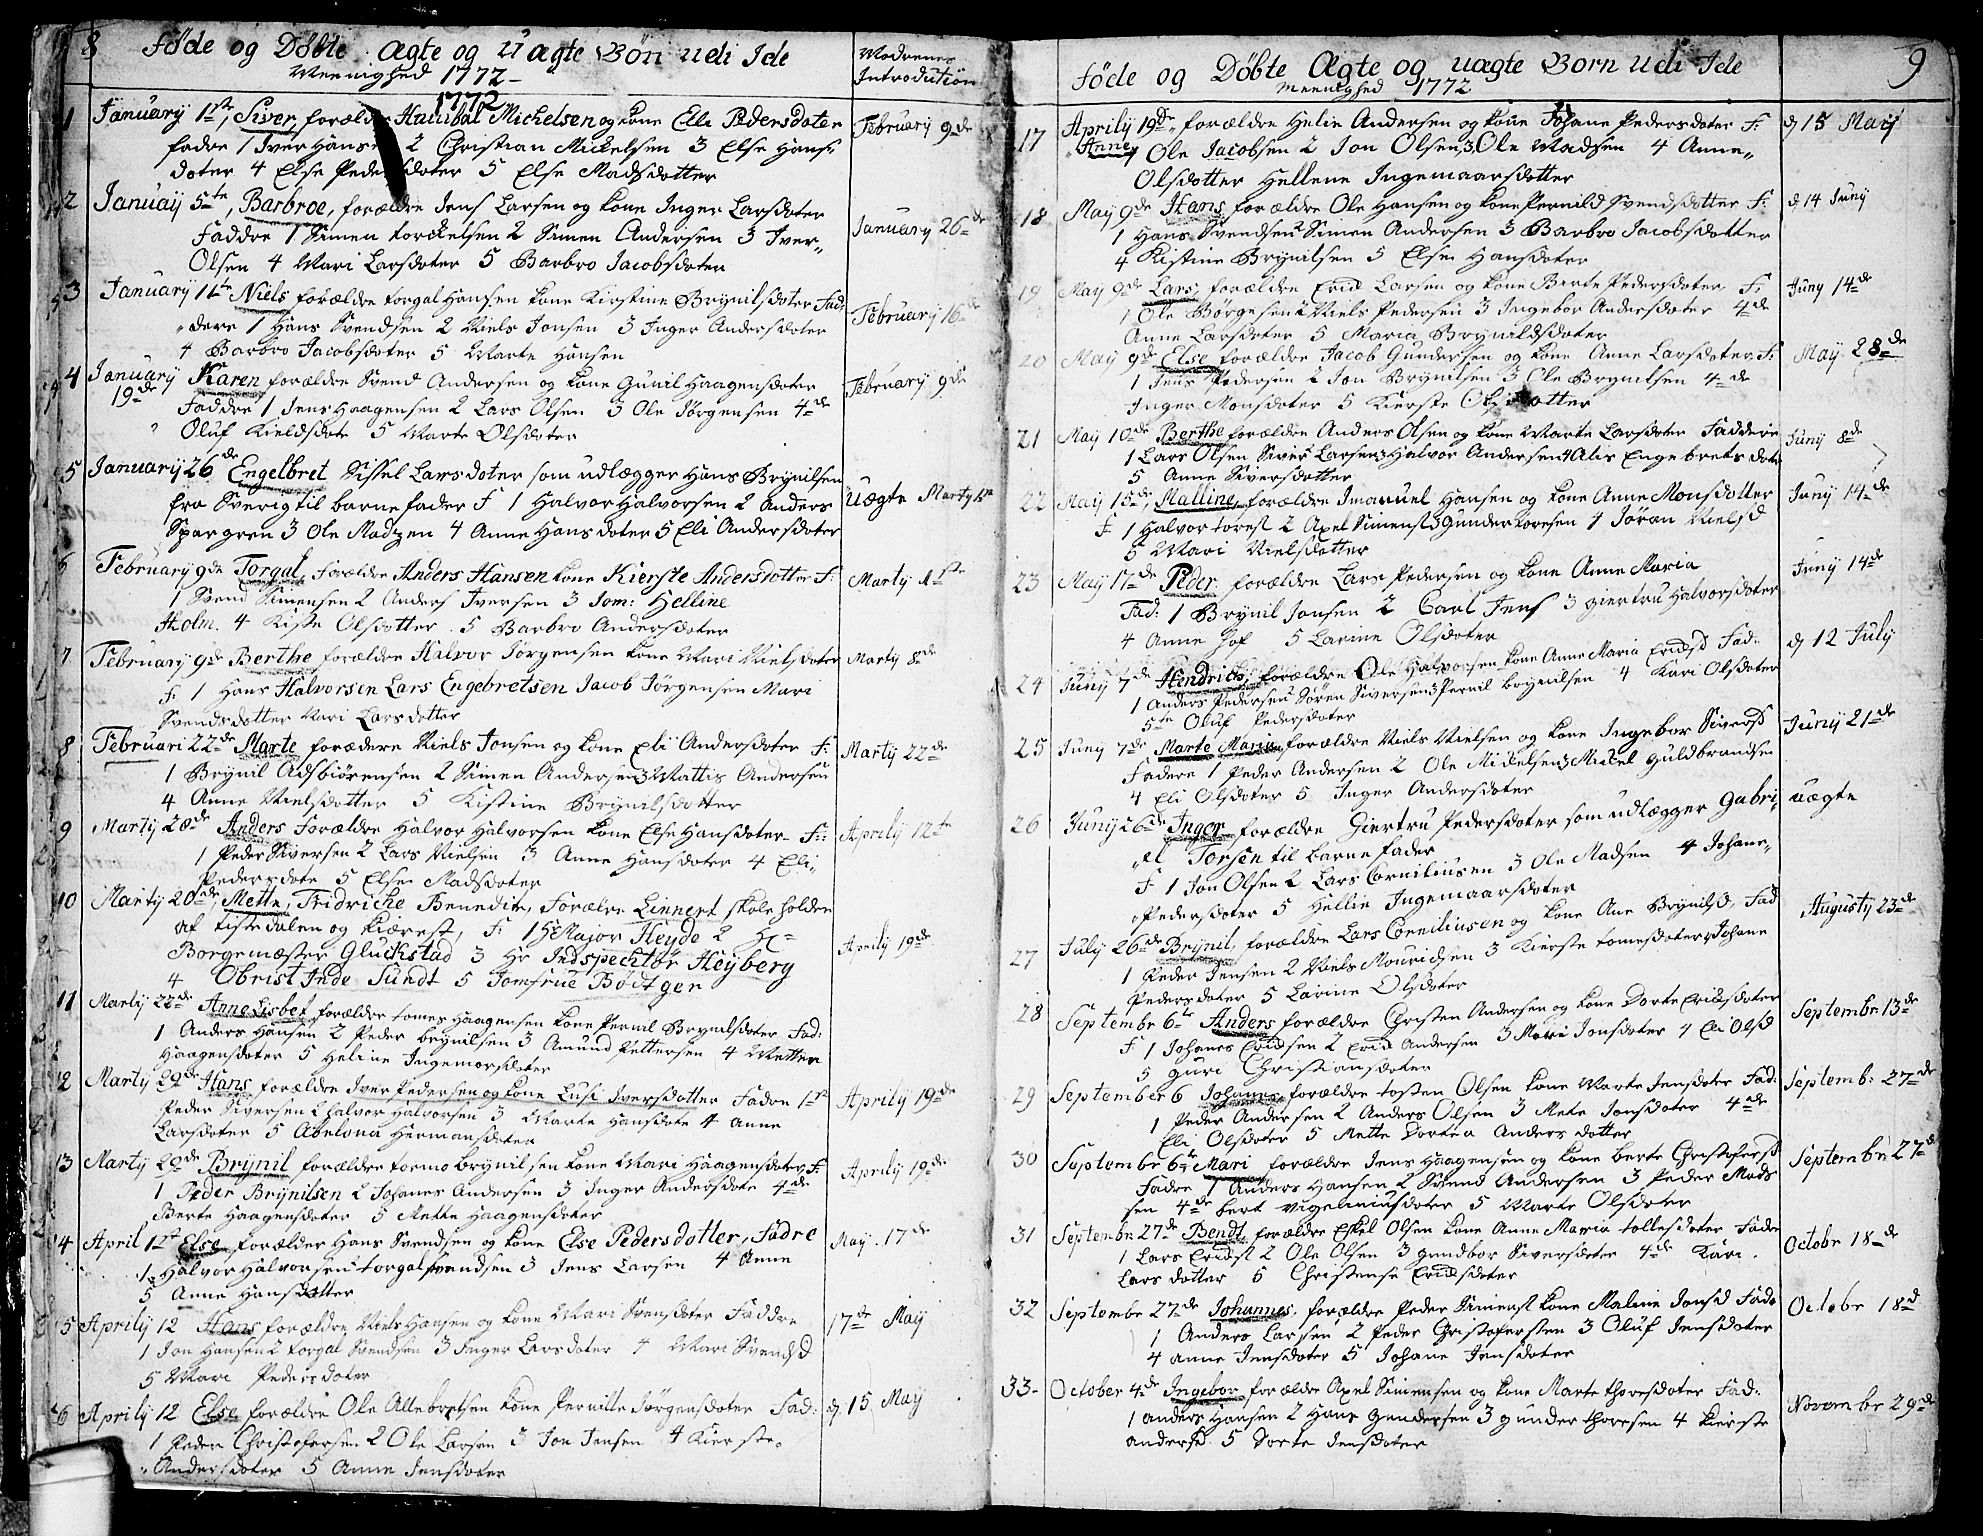 8
Føde og Døbte Ægte og Uægte Børn udi Ide
Meenighed 1772
Modrenes
Introdution
1772
1 Januarij 1ste, Siver, forældre Hanibal Michelsen og kone Elli Pedersdater
fadre 1 Iver Hansen 2 Christian Mickelsen 3 Else Hans:
dater 4 Else Pedersdater 5 Else Madsdotter
Februarij 9de
2 Januaij 5te, Barbroe, forældre Jens Larsen og kone Inger Larsdater
Faddre 1 Simen torckelsen 2 Simen Andersen 3 Iver
Olsen 4 Mari Larsdater 5 Barbro Jacobsdater
Januarij 26de
3 Januarij 1te Niels forældre torgal Hansen kone Kirstine Brynilsdater Fad:
dere 1 Hans Svendsen 2 Niels Jonsen 3 Inger Andersdater
4 Barbro Jacobsdater 5 Marte Hansen
Februarij 16de
4 Januarij Karen forældre Svend Andersen og kone Gunil Haagensdater
19de
Faddre 1 Jens Haagensen 2 Lars Olsen 3 Ole Jørgensen 4de
Oluf Kieldsdote 5 Marte Olsdater
Februarij 9de
5 Januarij 26de Engelbret Sissel Larsdoter som udlægger Hans Brynilsen
fra Sverig til barnefader F 1 Halvor Halvorsen 2 Anders
Spargren 3 Ole Madtzen 4 Anne Hansdater 5 Eli Andersdater
Uægte Martij
6 Februarij 9de Torgal, forældre Anders Hansen kone Kierste Andersdotter F:
1 Svend Simensen 2 Anders Iversen 3 Jom: Helline
Holm. 4 Kiste Olsdotter 5 Barbro Andersdater
Martij 1ste
7 Februarij 9de Berthe forældre Halvor Jørgensen kone Mari Nielsdater
F: 1 Hans Halvorsen Lars Engebretsen Jacob Jørgensen Mari
Svendsdotter Mari Larsdotter
Martij 8de
8 Februari 22de Marte forædere Niels Jonsen og kone Eli Andersdater F:
1 Brynil Adsbiørensen 2 Simen Andersen 3 Mattis Andersen
4 Anne Nielsdotter 5 Kistine Brynilsdotter
Martij 22de
9 Martij 28de Anders forældre Halvor Halvorsen kone Else Hansdater F:
1 Peder Siversen 2 Lars Nielsen 3 Anne Hansdater 4 Eli
Pedersdote 5 Else Madsdater
Aprilij 12te
10 Martij 20de, Mette, Fridriche Benedite, forælre Linnert skoleholder
af tistedalen og kiærest, F: 1 H Major Heyde 2 Hr
Borgemæster Gluckstad 3 Hr Indspecktør Heyberg
4 Obrist Inde Sundt 5 Jomfrue Bødtger
Aprilij 19de
11 Martij 22de Anne Lisbet forældre tomes Haagensen kone Pernil Brynilsdater Fad:
1 Anders Hansen 2 Peder brynilsen 3 Amund Pettersen 4 Metten
Haagensdater 5 Heline Ingemorsdater
12 Martij 29de Hans forældre Iver Pedersen og kone Lusi Iversdotter Fadre 1ste
Peder Siversen 2 Halvor Halvorsen 3 Marte Hansdote 4 Anne
Larsdater 5 Abelona Hermansdater
Aprilij 19de
13 Martij 29de Brynil forældre tormo brynilsen kone Mari Haagensdater F
1 Peder Brynilsen 2 Johanes Andersen 3 Inger Andersdote 4de
Berte Haagensdater 5 Mette Haagensdater
Aprilij 19de
14 April 12t Else forælder Hans Svendsen og kone Else Pedersdotter, Fadre
1 Halvor Halvorsen torgal Svendsen 3 Jens Larsen 4 Anne
5 Anne Hansdotter
Maij 17de
15 Aprilij 12 Hans forældre Niels Hansen og kone Mari Svensdater Faddre
1 Jon Hansen 2 torgal Svendsen 3 Inger Larsdater 4 Mari Svendsd
5 Mari Pedersdater
17de Maij
16 Aprilij 12 Else forældre Ole Allebretsen kone Pernille Jørgensdater Fad:
1 Peder Christofersen 2 Ole Larsen 3 Jon Jensen 4 Kierste
Andersdater 5 Anne Jensdater
d. 15 Maij
9
Føde og Døbte Ægte og uægte Børn udi Ide
Meenighed 1772
17 Aprilij 19de forældre Helie Andersen og kone Johane Pedersdater F:
Anne Ole Jacobsen 2 Jon Olsen 3 Ole Madsen 4 Anne
Olsdotter Hellene Ingemaarsdotter
d 15 Maij
18 Maij 9de Hans forældre Ole Hansen og kone Pernild Svendsdotter F:
1 Hans Svendsen 2 Simen Andersen 3 Barbro Jacobsdotter
4 Kistine Brynilsen 5 Else Hansdater
d 14 Junij
19 Maij 9de Lars, forældre Erick Larsen og kone Berte Pedersdater F:
1 Ole Børgesen 2 Niels Pedersen 3 Ingebor Andersdater 4de
Anne Larsdater 5 Maria Brynildsdater
Junij 14de
20 Maij 9de Else forældre Jacob Gundersen og kone Anne Larsdater F:
1 Jens Pedersen 2 Jon Brynilsen 3 Ole Brynilsen 4de
Inger Monsdater 5 Kierste Olsdotter
Maij 28de
21 Maij 10de Berthe forældre Anders Olsen og kone Marte Larsdater Faddere
1 Lars Olsen Siver Larsen 3 Halvor Andersen 4 Alis Engebretsdate
5 Anne Siversdotter
Junij 8de
22 Maij 15de, Malline, forældre Imanuel Hansen og kone Anne Monsdotter
F: 1 Halvor toresl 2 Axel Simensl 3 Gunder toresen 4 Jøran Nielsd
5 Mari Nielsdotter
Junij 14de
23 Maij 17de Peder forældre Lars Pedersen og kone Anne Maria
Fad: 1 Brynil Jonsen 2 Carl Jens 3 Giertru Halvorsdater
4 Anne Hof 5 Larine Olsdater
Junij 14de
24 Junij 7de Hendrick, forældre Ole Halvorsen kone Anne Maria Ericksd Fad:
1 Anders Pedersen 2 Søren Siversen 3 Pernil brynilsen 4 Kari Olsdater
5te Oluf Pedersdater
d 12 Julij
25 Junij 7de Marte Maria forældre Niels Nielsen og kone Ingebor Siversd
Fadere 1 Peder Andersen 2 Ole Mickelsen 3 Mickel Guldbrandsen
4 Eli Olsdater 5 Inger Andersdater
Junij 21de
26 Junij 26de Inger forældre Giertru Pedersdater som udlægger Gabri
el Torsen til barnefader
F 1 Jon Olsen 2 Lars Corniliusen 3 Ole Madsen 4 Johane
Pedersdater 5 Hellie Ingemaarsdater
uægte
27 Julij 26de Brynil, forældre Lars Corniliusen og kone Ane Brynilsd, Fad
1 Peder Jensen 2 Niels Mouridsen 3 Kierste tomesdater 4 Johane
Pedersdater 5 Larine Olsdater
Augustij 23de
28 Septembr 6te Anders forældre Christen Andersen og kone Dorte Ericksdater
F 1 Johanes Ericksen 2 Erick Andersen 3 Mari Jonsdater 4 Eli Olsd
5 Guri Christiansdater
Septembr 13de
29 September 6 Johanes, forældre tosten Olsen kone Marte Jensdater Fad:
1 Peder Andersen 2 Anders Olsen 3 Mete Jonsdater 4de
Eli Olsdater 5 Mette Dortea Andersdotter
Septemb: 27de
30 Septembr 6te Mari forældre Jens Haagensen og kone berte Christofersd
Fadre 1 Anders Hansen 2 Svend Andersen 3 Peder Mads
sen 4de bert Vigeliniusdater 5 Marte Olsdater
Septembr 27de
31 Septembr 27de Bendt forældre Eskel Olsen kone Anne Maria tollesdater Fadre
1 Lars Ericksl 2 Ole Olsen 3 gundbor Siversdater 4de Kari
Larsdotter 5 Christense Ericksdater
Octobr 18de
32 Septembr 27de Johannes, forældre Peder Simensl kone Maline Jonsd Fade
1 Anders Larsen 2 Peder Christofersen 3 Oluf Jensdater
4 Anne Jensdater 5 Johane Jensdater
Octobr 18d
33 October 4de Ingebor forældre Axel Simensen og kone Marte thoresdater Fad:
1 anders Hansen 2 Hans Gundersen 3 gunder thoresen 4 Kierste
andersd 5 Dorte Jensdater
Novembr 29de